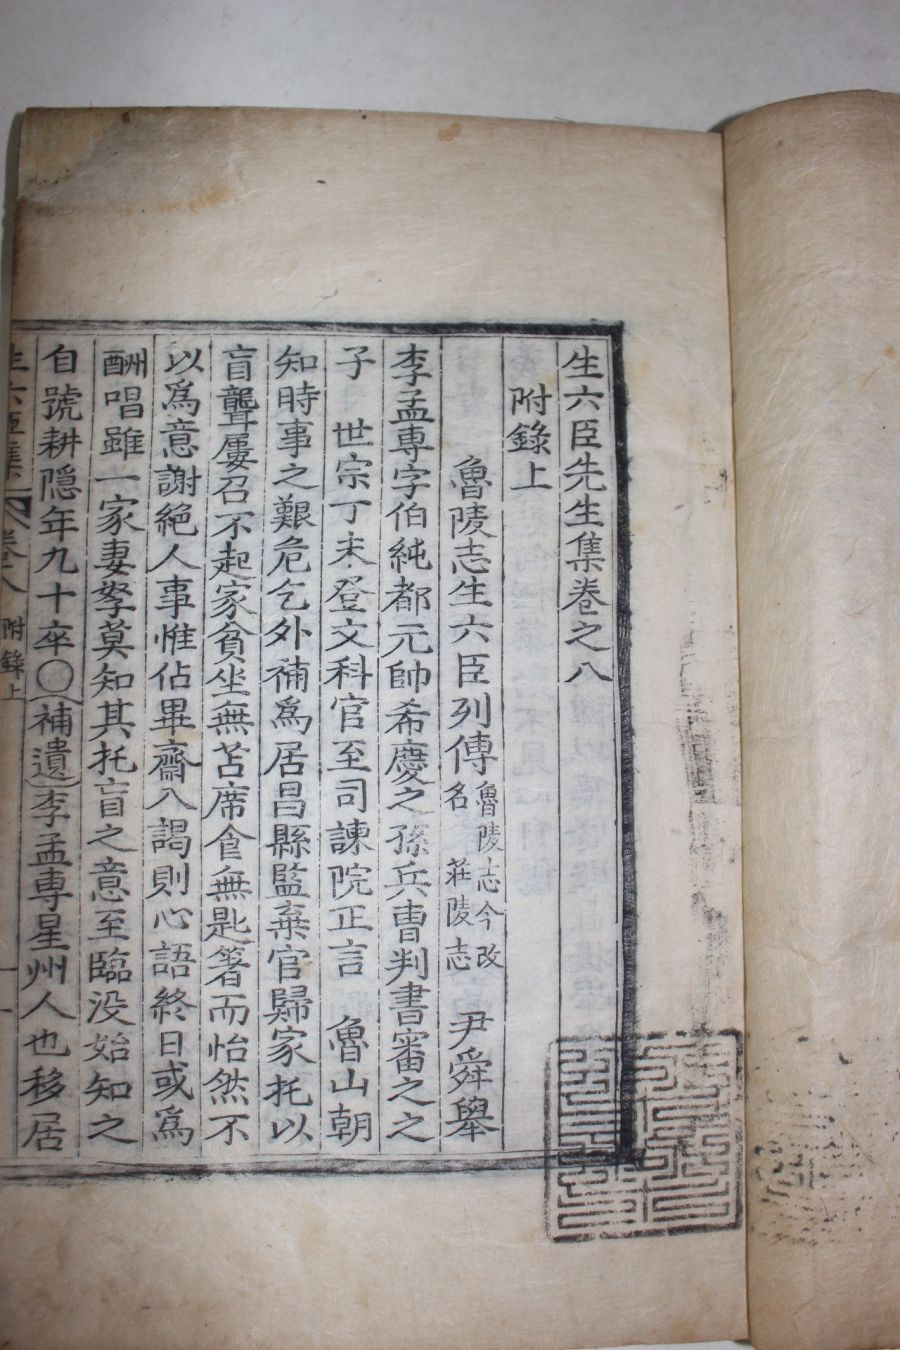 生六臣先生集卷之八
附錄上
魯陵志生六臣列傳 魯陵志今改名莊陵志 尹舜擧
李孟專字伯純都元帥希慶之孫兵曹判書審之之
子 世宗丁未登文科官至司諫院正言 魯山朝
知時事之艱危乞外補爲居昌縣監棄官歸家托以
盲聾屢召不起家貧坐無苫席食無匙箸而怡然不
以爲意謝絕人事惟佔畢齋入謁則心語終日或爲
酬唱雖一家妻孥莫知其托盲之意至臨没始知之
自號耕隱年九十卒〇補遺李孟專星州人也移居
生六臣集 卷八 附錄上